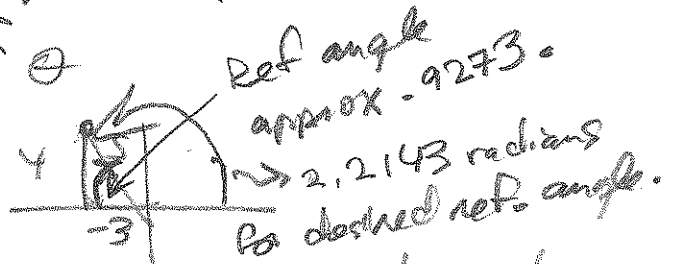 θ
Ref angle
approx .9273.
4
5
→ 2.2143 radians
-3
for desired ref. angle.